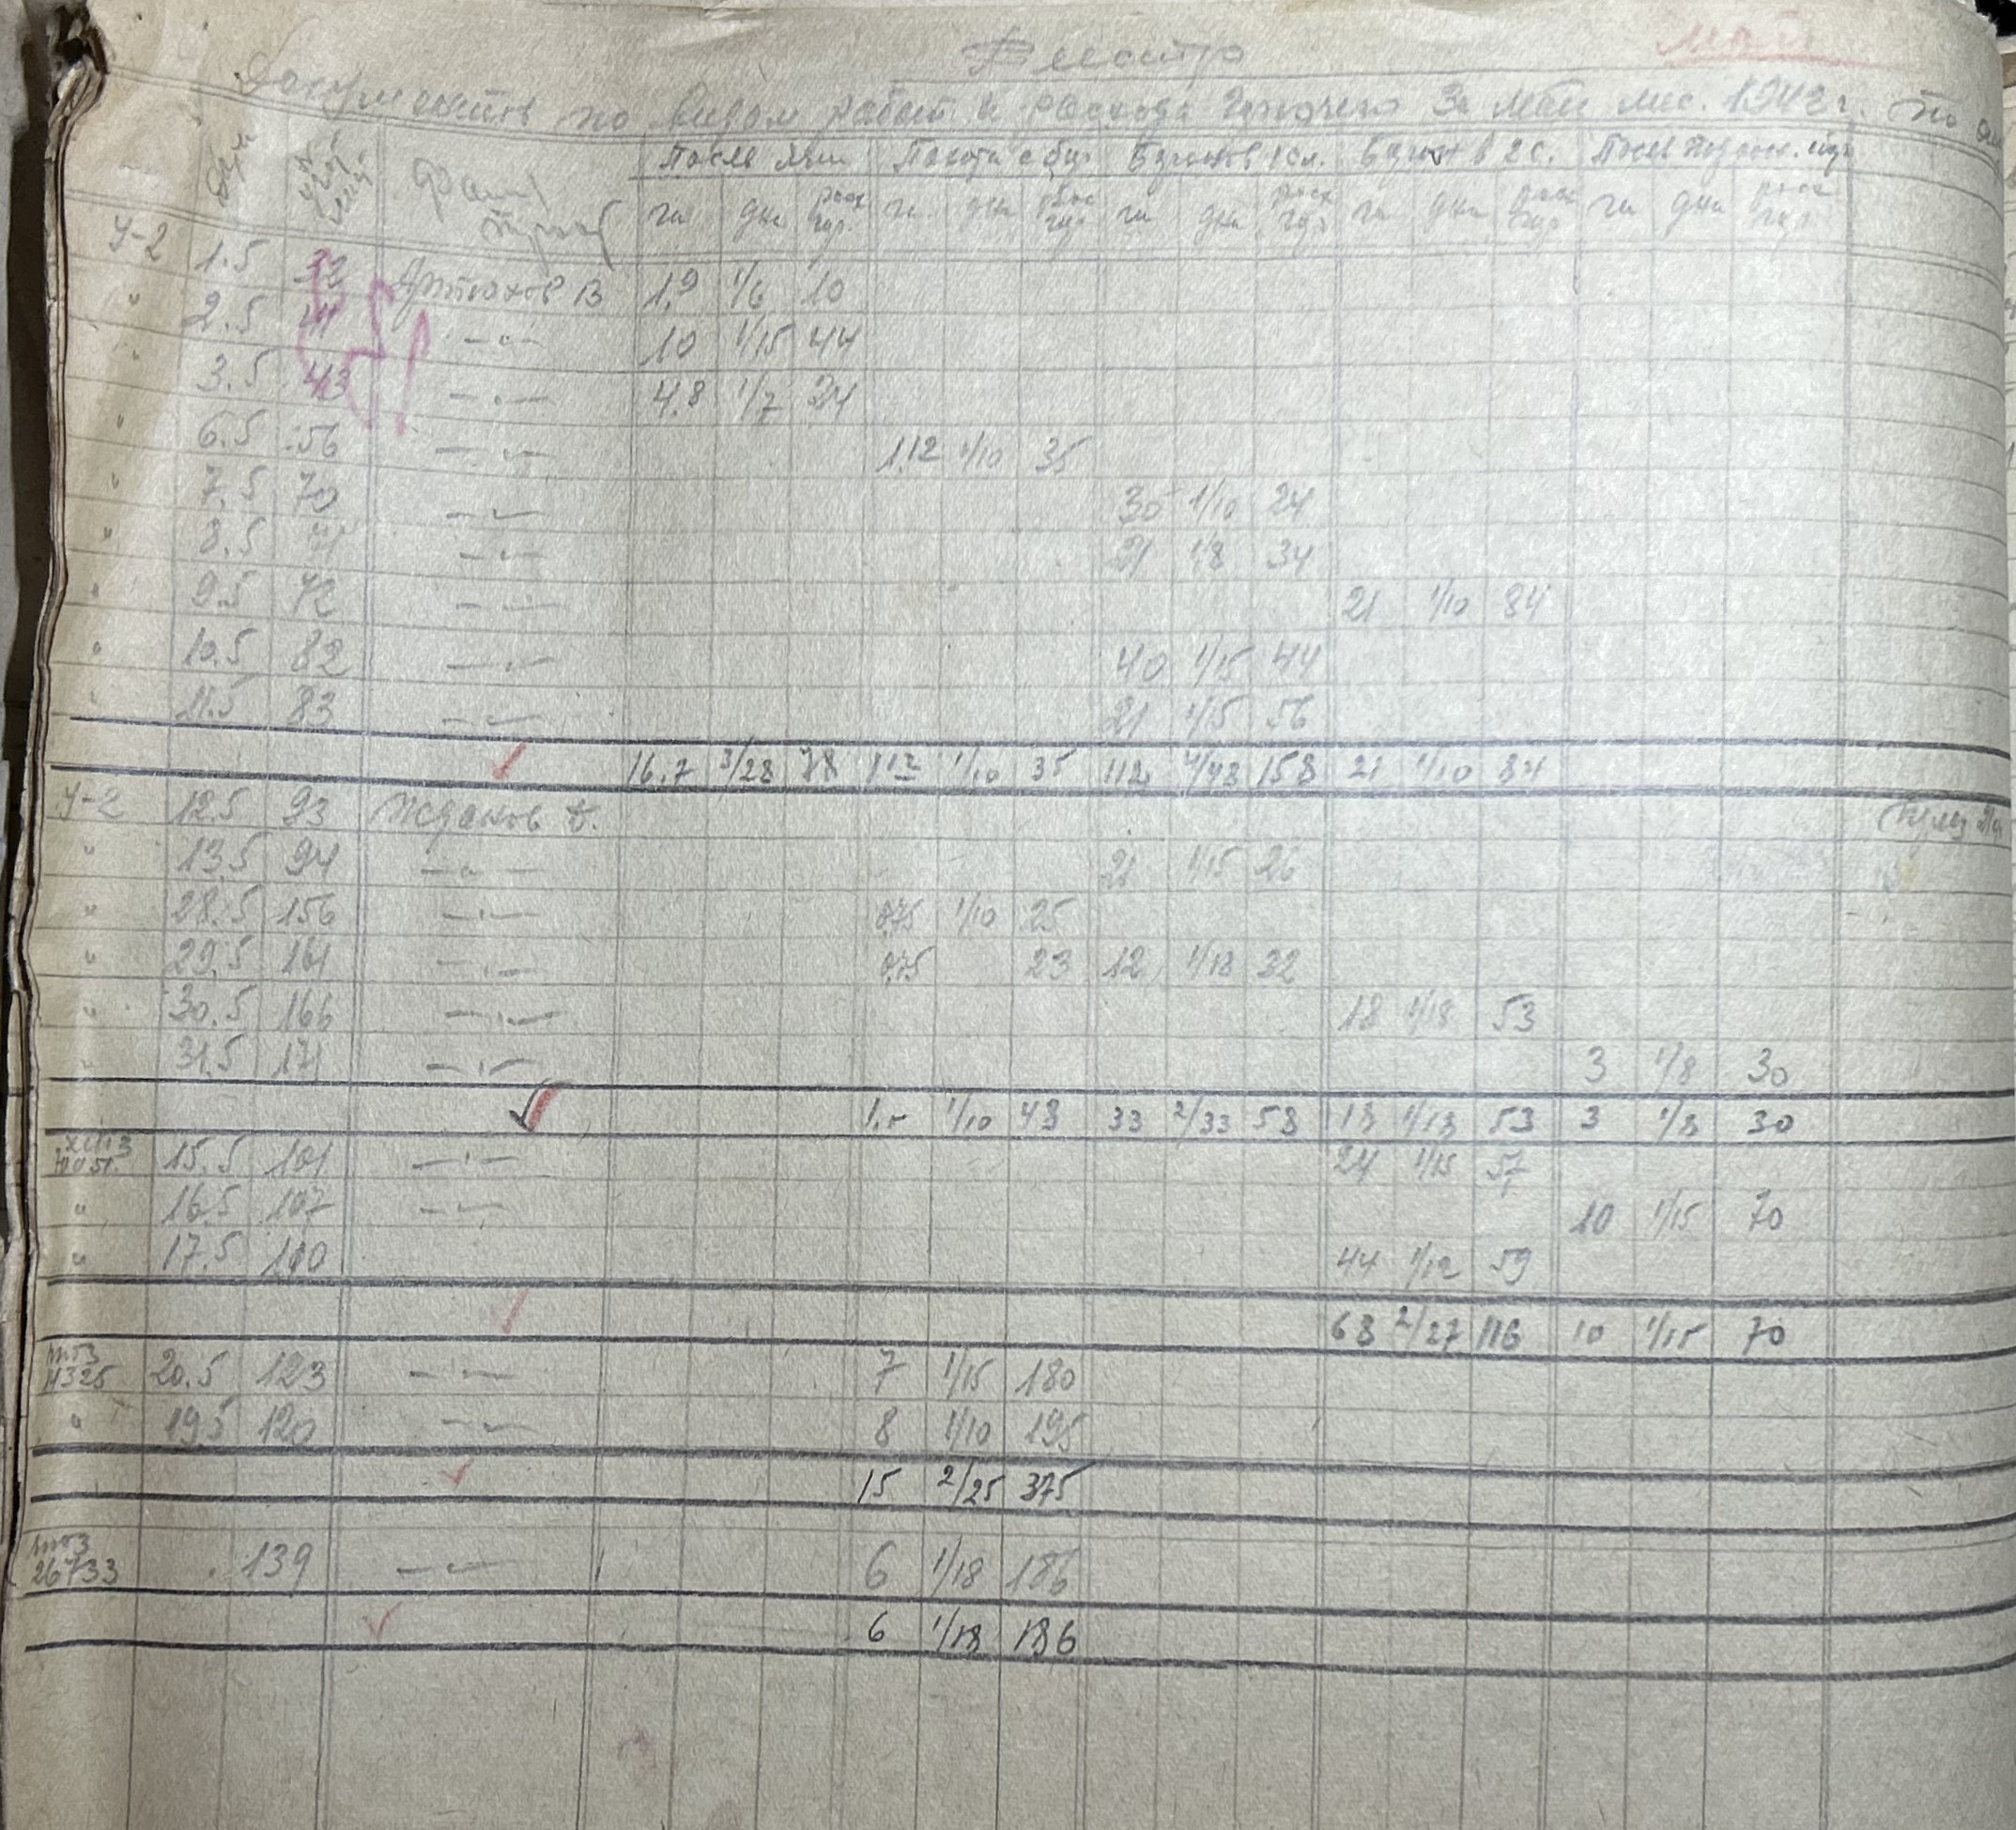 май
Реестр
Документов по видам работ и расхода горючего за май мес. 1942 г. по
Посев Пахота Бороновка 1 сл. Боронов в 2 с. Посев
га дни расх гор. га дни расх гор. га дни расх гор. га дни расх гор. га дни расх гор.
У-2 1.5 32 Артюхов В 1,9 1/6 10
" 2.5 41 —"— 10 1/15 44
" 3.5 43 —"— 4.8 1/7 24
" 6.5 56 —"— 1.12 1/10 35
" 7.5 70 —"— 30 1/10 24
" 8.5 71 —"— 21 1/8 34
" 9.5 72 —"— 21 1/10 84
" 10.5 82 —"— 40 1/15 44
" 11.5 83 —"— 21 1/15 56
16.7 3/28 78 1 12 1/10 35 112 4/48 158 21 1/10 84
У-2 12.5 93 Жданов
" 13.5 94 —"— 21 1/15 26
" 28.5 156 —"— 0.75 1/10 25
" 29.5 161 —"— 0.75 23 12 1/18 32
" 30.5 166 —"— 18 1/18 53
" 31.5 171 —"— 3 1/8 30
1.5 1/10 48 33 2/33 58 18 1/18 53 3 1/8 30
ХТЗ 15.5 101 —"— 24 1/15 57
" 16.5 107 —"— 10 1/15 70
" 17.5 110 44 1/12 59
68 2/27 116 10 1/15 70
4325 20.5 123 —"— 7 1/15 180
" 19.5 120 —"— 8 1/10 195
15 2/25 375
26733 139 —"— 6 1/18 186
6 1/18 186